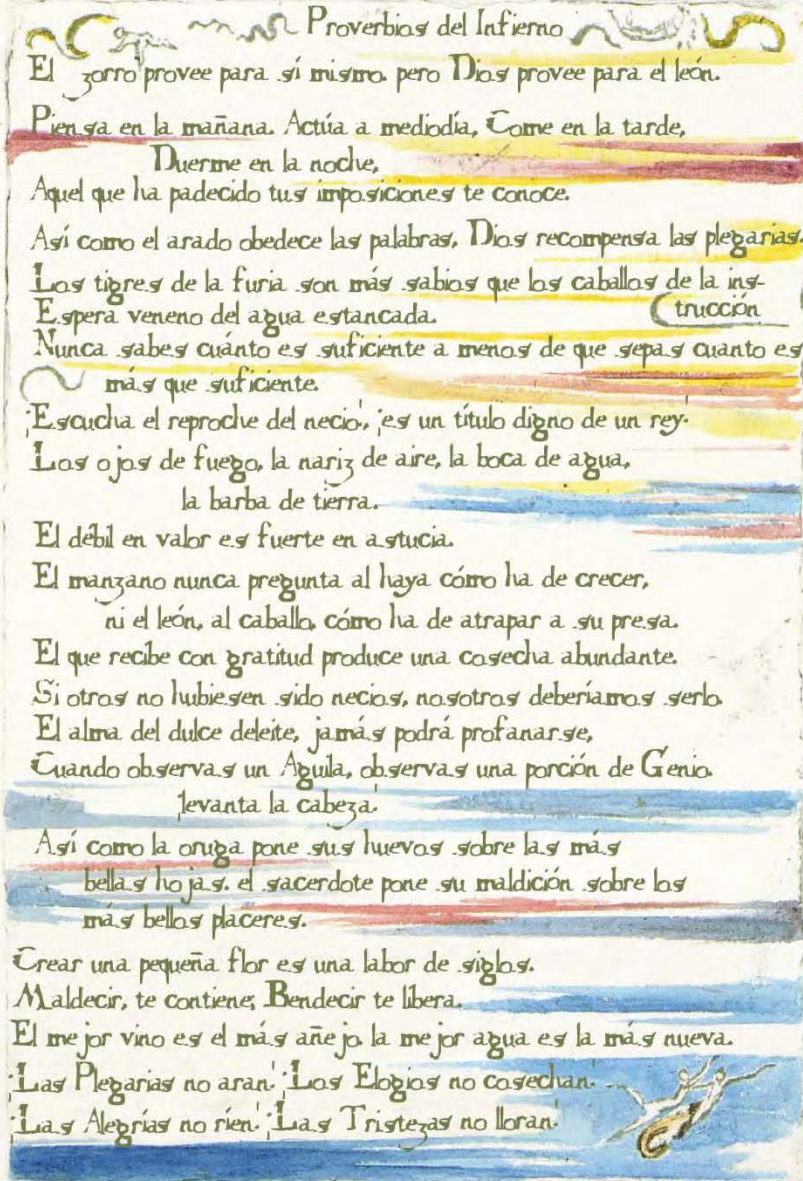 Proverbios del Infierno
El zorro provee para sí mismo. pero Dios provee para el león.
Piensa en la mañana. Actúa a mediodía, Come en la tarde,
Duerme en la noche,
Aquel que ha padecido tus imposiciones te conoce.
Así como el arado obedece las palabras, Dios recompensa las plegarias.
Los tigres de la furia son más sabios que los caballos de la ins-
Espera veneno del agua estancada. (trucción
Nunca sabes cuánto es suficiente a menos de que sepas cuanto es
más que suficiente.
¡Escucha el reproche del necio!, ¡es un título digno de un rey!
Los ojos de fuego, la nariz de aire, la boca de agua,
la barba de tierra.
El débil en valor es fuerte en astucia.
El manzano nunca pregunta al haya cómo ha de crecer,
ni el león, al caballo, cómo ha de atrapar a su presa.
El que recibe con gratitud produce una cosecha abundante.
Si otros no hubiesen sido necios, nosotros deberíamos serlo.
El alma del dulce deleite, jamás podrá profanarse,
Cuando observas un Aguila, observas una porción de Genio.
¡levanta la cabeza!
Así como la oruga pone sus huevos sobre las más
bellas hojas. el sacerdote pone su maldición sobre los
más bellos placeres.
Crear una pequeña flor es una labor de siglos.
Maldecir, te contiene; Bendecir te libera.
El mejor vino es el más añejo, la mejor agua es la más nueva.
¡Las Plegarias no aran! ¡Los Elogios no cosechan!
¡Las Alegrías no ríen! ¡Las Tristezas no lloran!